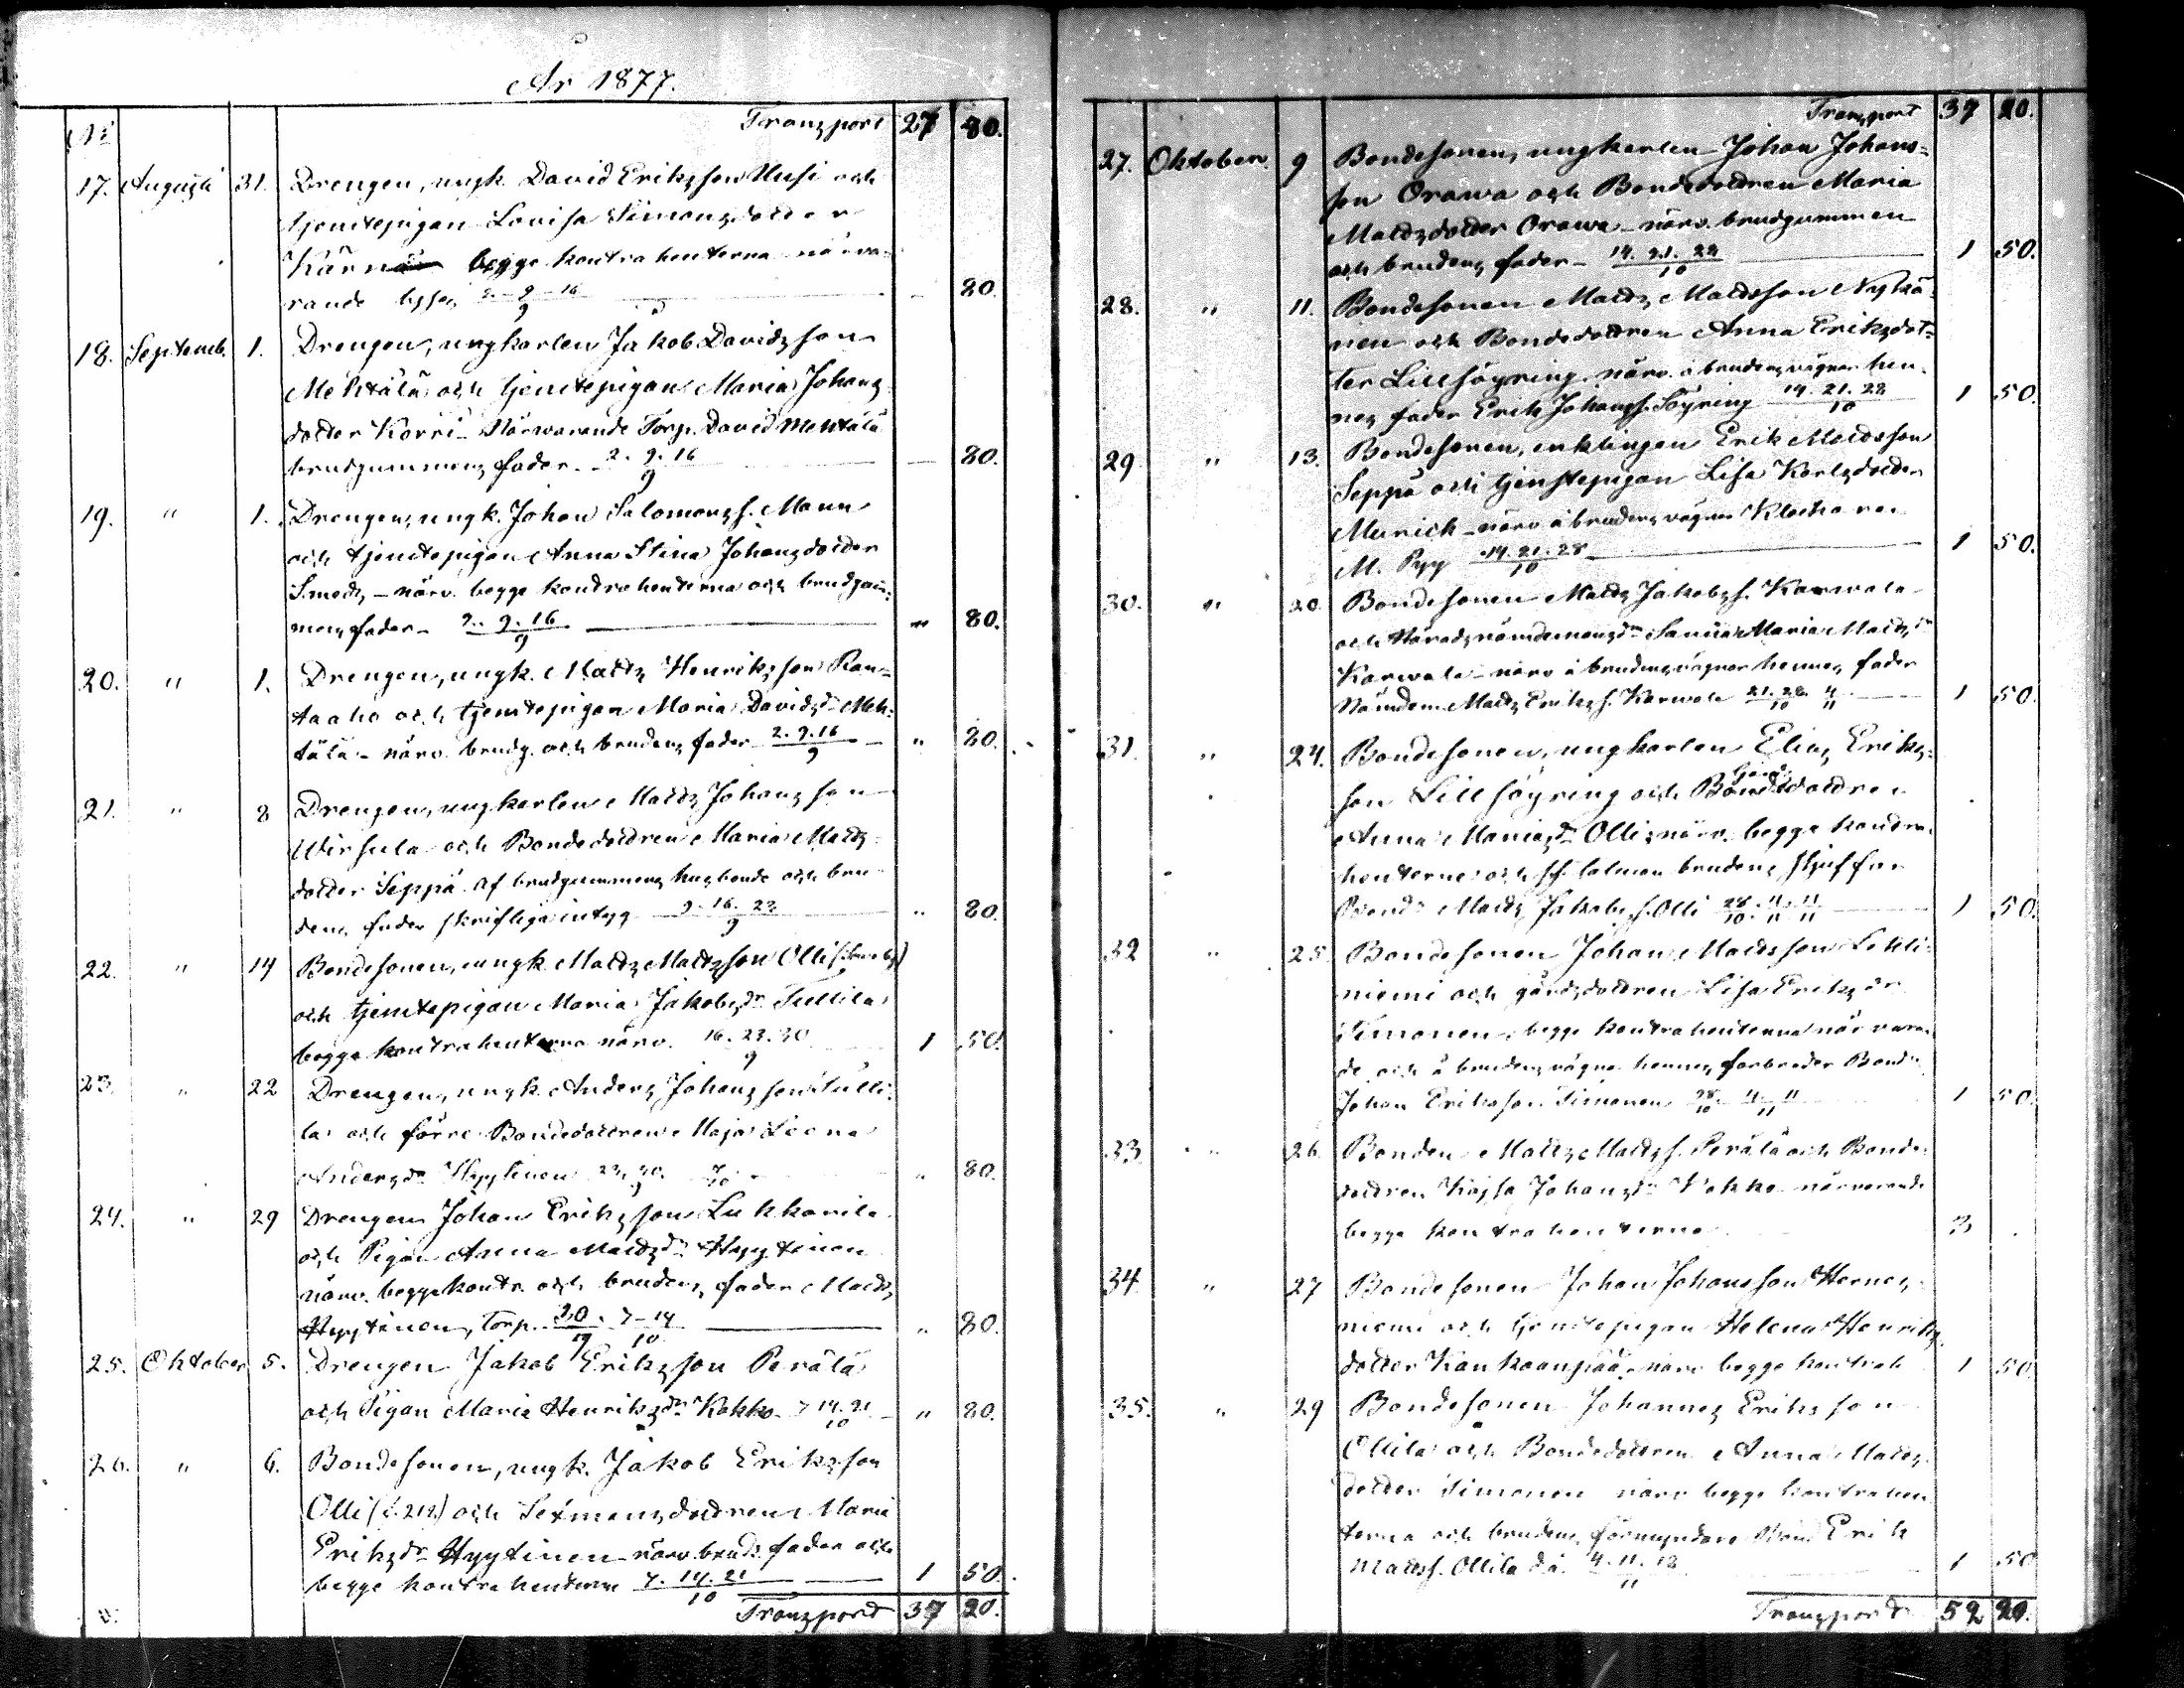 År 1877.
No Transport 27 80.
17. Augusti 31. Drengen, ungk. David Eriksson Uusi och
tjenstepigan Lovisa Simonsdotter
Kärnä begge kontrahenterna närva-
rande 2-9-16/9 80.
18. Septemb. 1. Drengen, ungkarlen Jakob Davidsson
Mehtälä och tjenstepigan Maria Johans
dotter Korri - Närwarande Torp. David Mehtälä
brudgummens fader. 2.9.16/9 — 80.
19. " 1. Drengen, ungk. Johan Salomonss. Mann
och tjenstepigan Anna Stina Johansdotter
Smeds, - närv. begge kontrahenterna och brudgum-
mens fader - 2.9.16/9 " 80.
20. " 1. Drengen, ungk. Matts Henriksson Ran-
taaho och tjenstepigan Maria Davidsdr Meh-
tälä - närv. brudg. och brudens fader 2.9.16/9 " 80.
21. " 8 Drengen, ungkarlen Matts Johansson
Wirsula och Bondedottren Maria Matts
dotter Seppä. af brudgummens husbonde och bru-
dens fader skriftliga intyg 9.16.23/9 " 80.
22. " 14 Bondesonen, ungk. Matts Mattsson Olli
och tjenstepigan Maria Jakobsdr Tullila
begge kontrahenterna närv. 16.23.30/9 1 50.
23. " 22 Drengen, ungk. Anders Johansson Tulli-
la och förre Bondedottren Maja Leena
Andersdr Hyytinen 23.30/9 7/10 " 80.
24. " 29 Drengen Johan Eriksson Lukkarila
och Pigan Anna Mattsdr Hyytinen
närv. begge kontr. och brudens fader Matts
Hyytinen, Torp. 30/9 7-14/10 " 80.
25. Oktober 5. Drengen Jakob Eriksson Perälä
och Pigan Maria Henriksdr Kokko 7 14.21/10 " 80.
26. " 6. Bondesonen, ungk. Jakob Eriksson
Olli och Sexmansdottren Maria
Eriksdr Hyytinen närv. bruds fader och
begge kontrahenterna 7.14.21/10 1 50.
Transport 37 20.
Transport 37 20.
27. Oktober 9 Bondesonen, ungkarlen Johan Johans-
son Orawa och Bondedottren Maria
Mattsdotter Orawa - närv. brudgummen
och brudens fader - 14.21.28/10 1 50.
28. " 11. Bondesonen Matts Mattsson Nykä-
nen och Bondedottren Anna Eriksdot-
ter Lillsöyring. närv. å brudens vägnar hen-
nes fader Erik Johanss. Söyring 14.21.28/10 1 50.
29 " 13. Bondesonen, enklingen Erik Mattsson
Seppä och tjenstepigan Lisa Karlsdotter
Munich - närv. å brudens vägnar Klockaren
M. Pyy 14.21.28/10 1 50.
30. " 20. Bondesonen Matts Jakobss. Karwala
och Häradsnämdemansdr Sanna Maria Mattsdr
Karwala - närv. å brudens vägnar hennes fader
Nämdem. Matts Erikss. Karwala 21.28/10 4/11 1 50.
31. " 24. Bondesonen, ungkarlen Elias Eriks-
son Lillsöyring och Bondedottren
Anna Mariasdr Olli, närv. begge kontra-
henterne och brudens styffar
Bond. Matts Jakobs s. Olli 28/10 4/11 11/11 1 50.
32 " 25 Bondesonen Johan Mattsson Lehti-
niemi och gårdsdottren Lisa Eriksdr
Timonen, begge kontrahenterna närvaran-
de och å brudens vägnar hennes farbroder Bond.
Johan Eriksson Timonen 28/10 4 11/11 1 50.
33 " 26 Bonden Matts Mattss. Perälä och Bonde-
dottren Kajsa Johansdr Kokko närvarande
begge kontrahenterna 3
34. " 27 Bondesonen Johan Johansson Hernes-
niemi och tjenstepigan Helena Henriks
dotter Kankaanpää. närv. begge kontrah. 1 50
35. " 29 Bondesonen Johannes Eriksson
Ollila och Bondedottren Anna Matts
dotter Timonen närv begge kontrahen
terna och brudens förmyndare Bond Erik
Matss. Ollila 4.11.18/11 1 50
Transport 52 20.